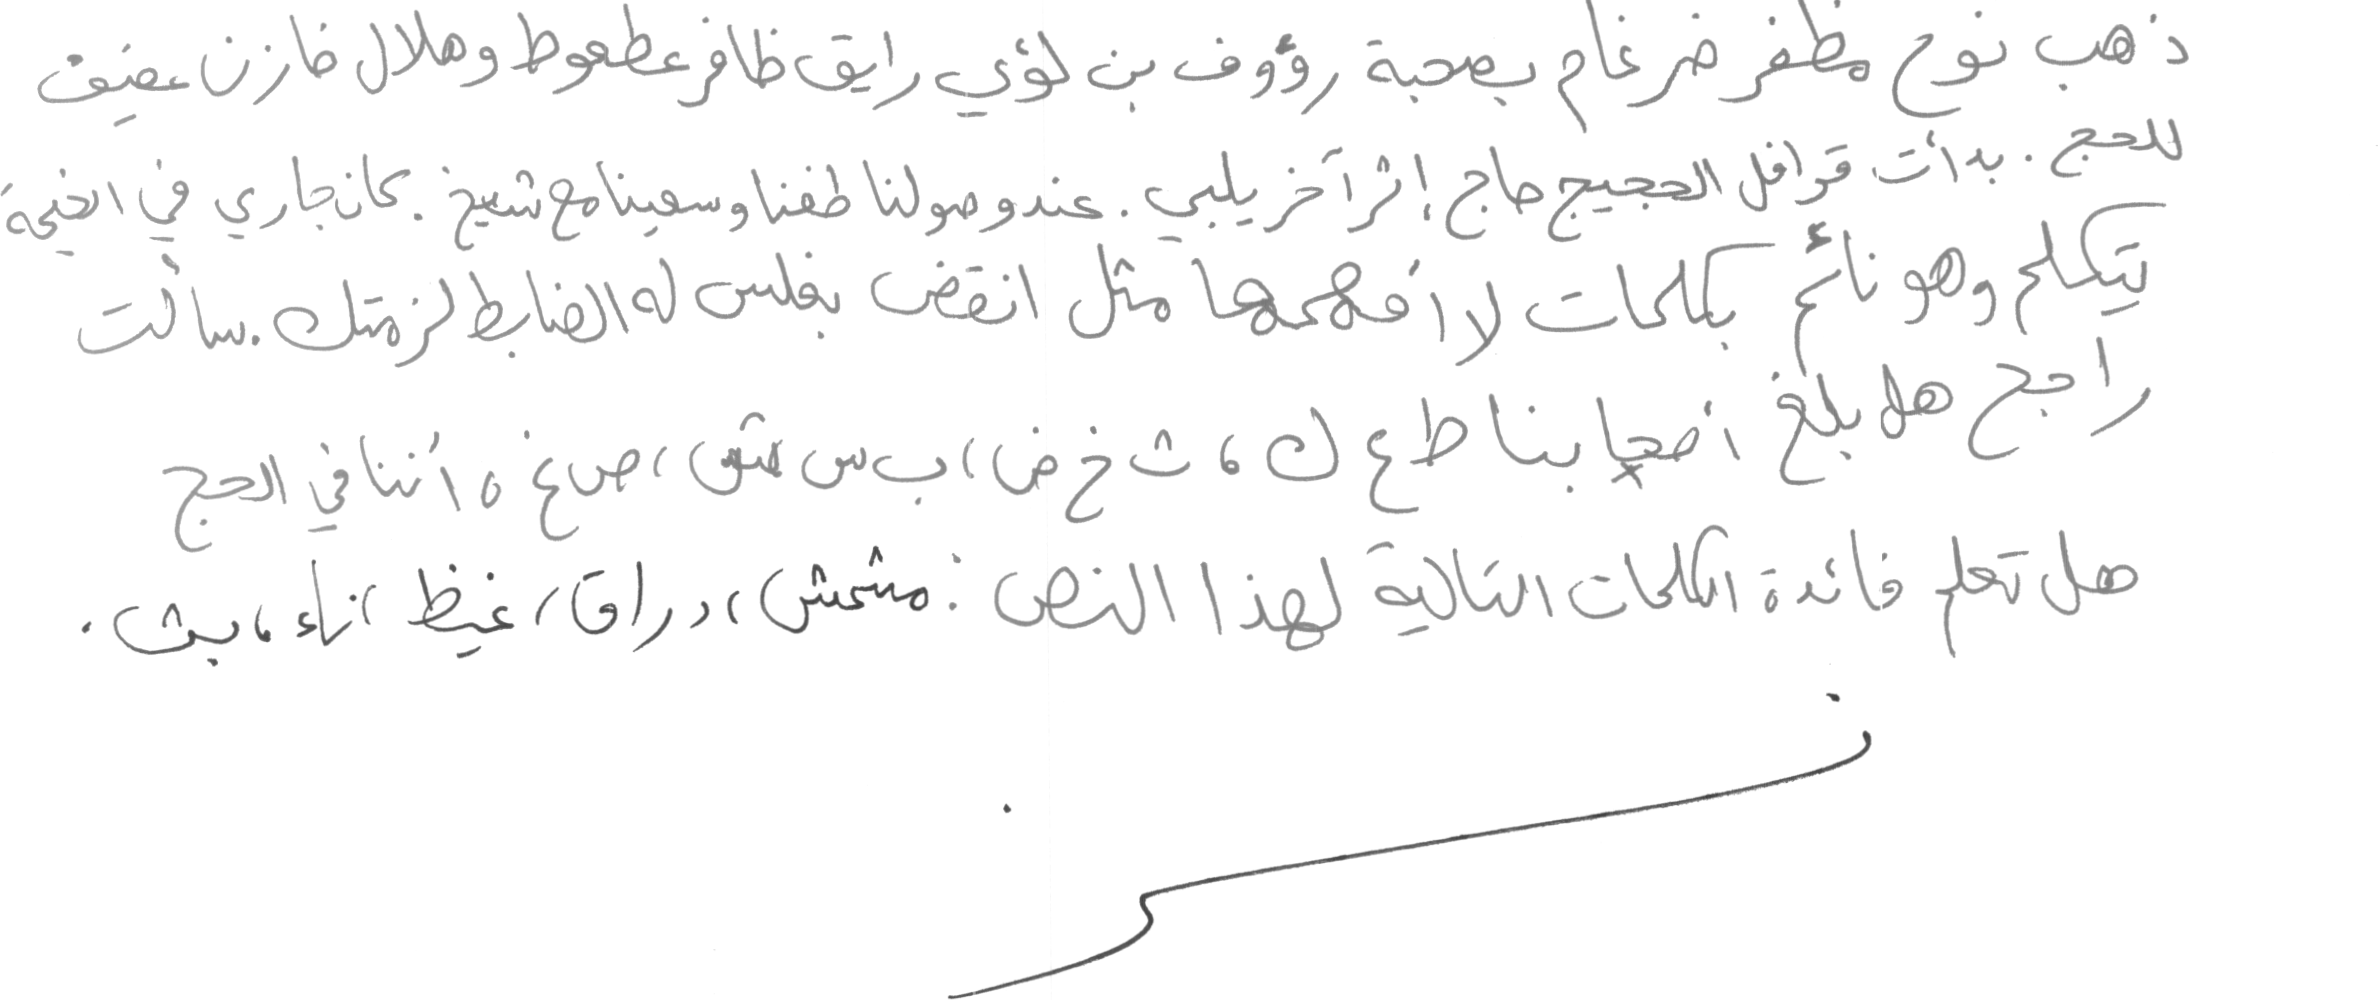 ذهب نوح مظفر ضرغام بصحبة رؤوف بن لؤي رايق ظافر عطعوط وهلال خازن عضيف
للحج. بدأت قوافل الحجيج حاج إثر آخر يلبي. عند وصولنا طفنا وسعينا مع شيخ. كان جاري في الخيمة
يتكلم وهو نائم بكلمات لا أفهمها مثل انقض بغلس له الضابط لزمتك. سألت
راجح هل بلغ أصحابنا ط ع ك، ث خ ض، ب س ش، ص غ ة أننا في الحج
هل تعلم فائدة الكلمات التالية لهذا النص: مشمش، دراق، غيظ، إناء، بث.